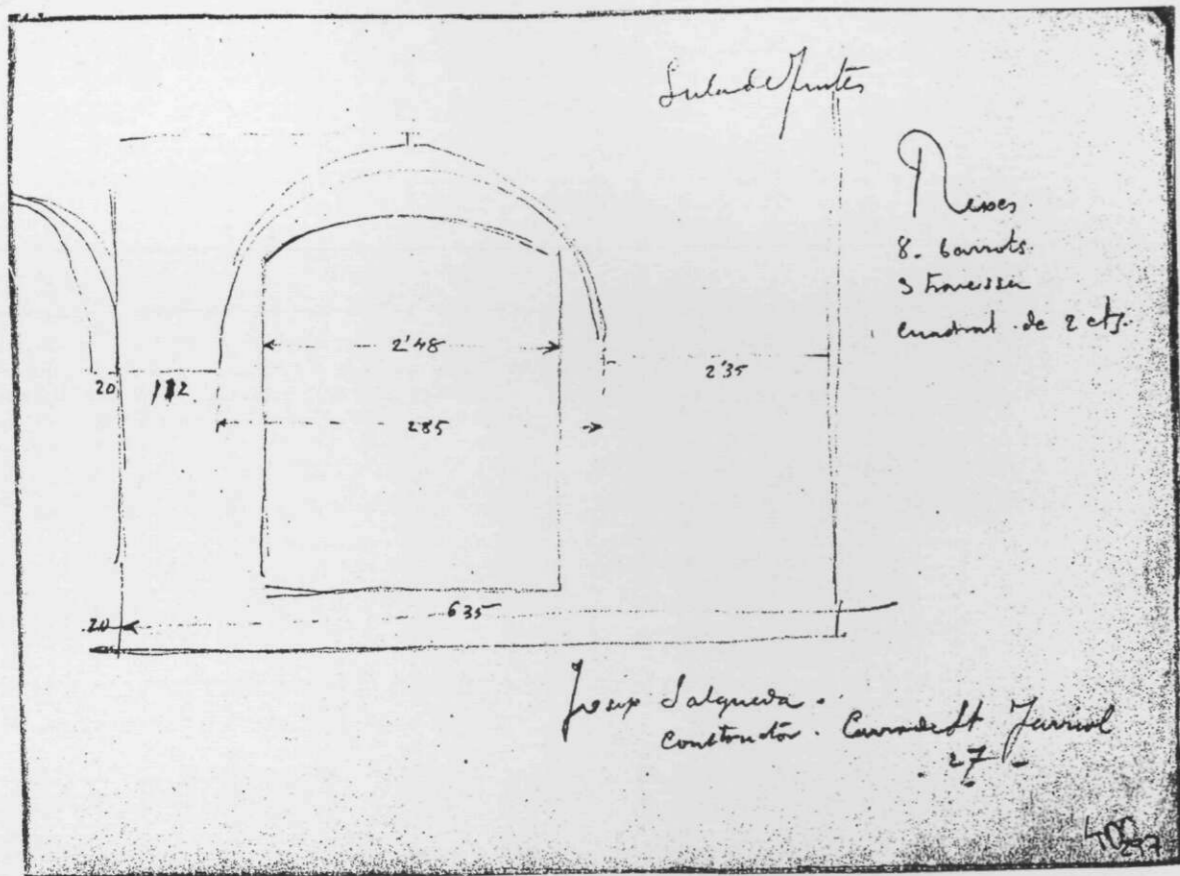 Sala de Juntes
Reixes
8. barrots
3 travesser
cuadrat de 2 cts.
2'48
2'35
20 112.
285
635
20
Josep Salqueda.
Constructor. Carrer de St
27
400
247